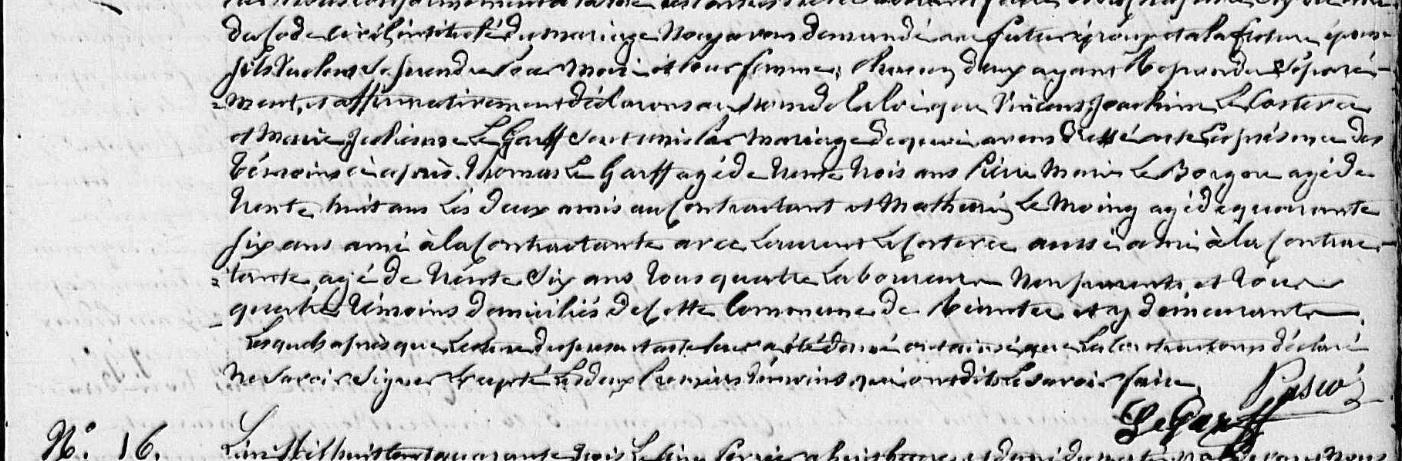 du Code Civil intitulé du mariage Nous avons demandé au futur époux et à la future épouse
s'ils veulent se prendre pour mari et pour femme, chacun d'eux ayant répondu séparé-
ment, et affirmativement déclarons au nom de la loi que Vincent Joachim Le
et Marie Julienne Le Garff sont unis par mariage de quoi avons dressé acte en présence des
témoins ci après. Thomas Le Garff agé de trente trois ans Pierre Marie Le Borgne agé de
trente huit ans les deux amis au contractant et Mathurin Le Moing agé de quarante
six ans ami à la contractante avec Laurent Le aussi ami à la contrac-
tante, agé de trente six ans tous quatre laboureurs non parents et tous
quatre témoins domiciliés de cette commune de et y demeurants.
Lesquels après que lecture du présent acte leur a été donné ont ainsi que les contractans déclaré
ne savoir signer excepté les deux premiers témoins qui ont dit le savoir faire
Le Garff
N.° 16. L'an Mil huit cent quarante trois le février à huit heures et demie du matin